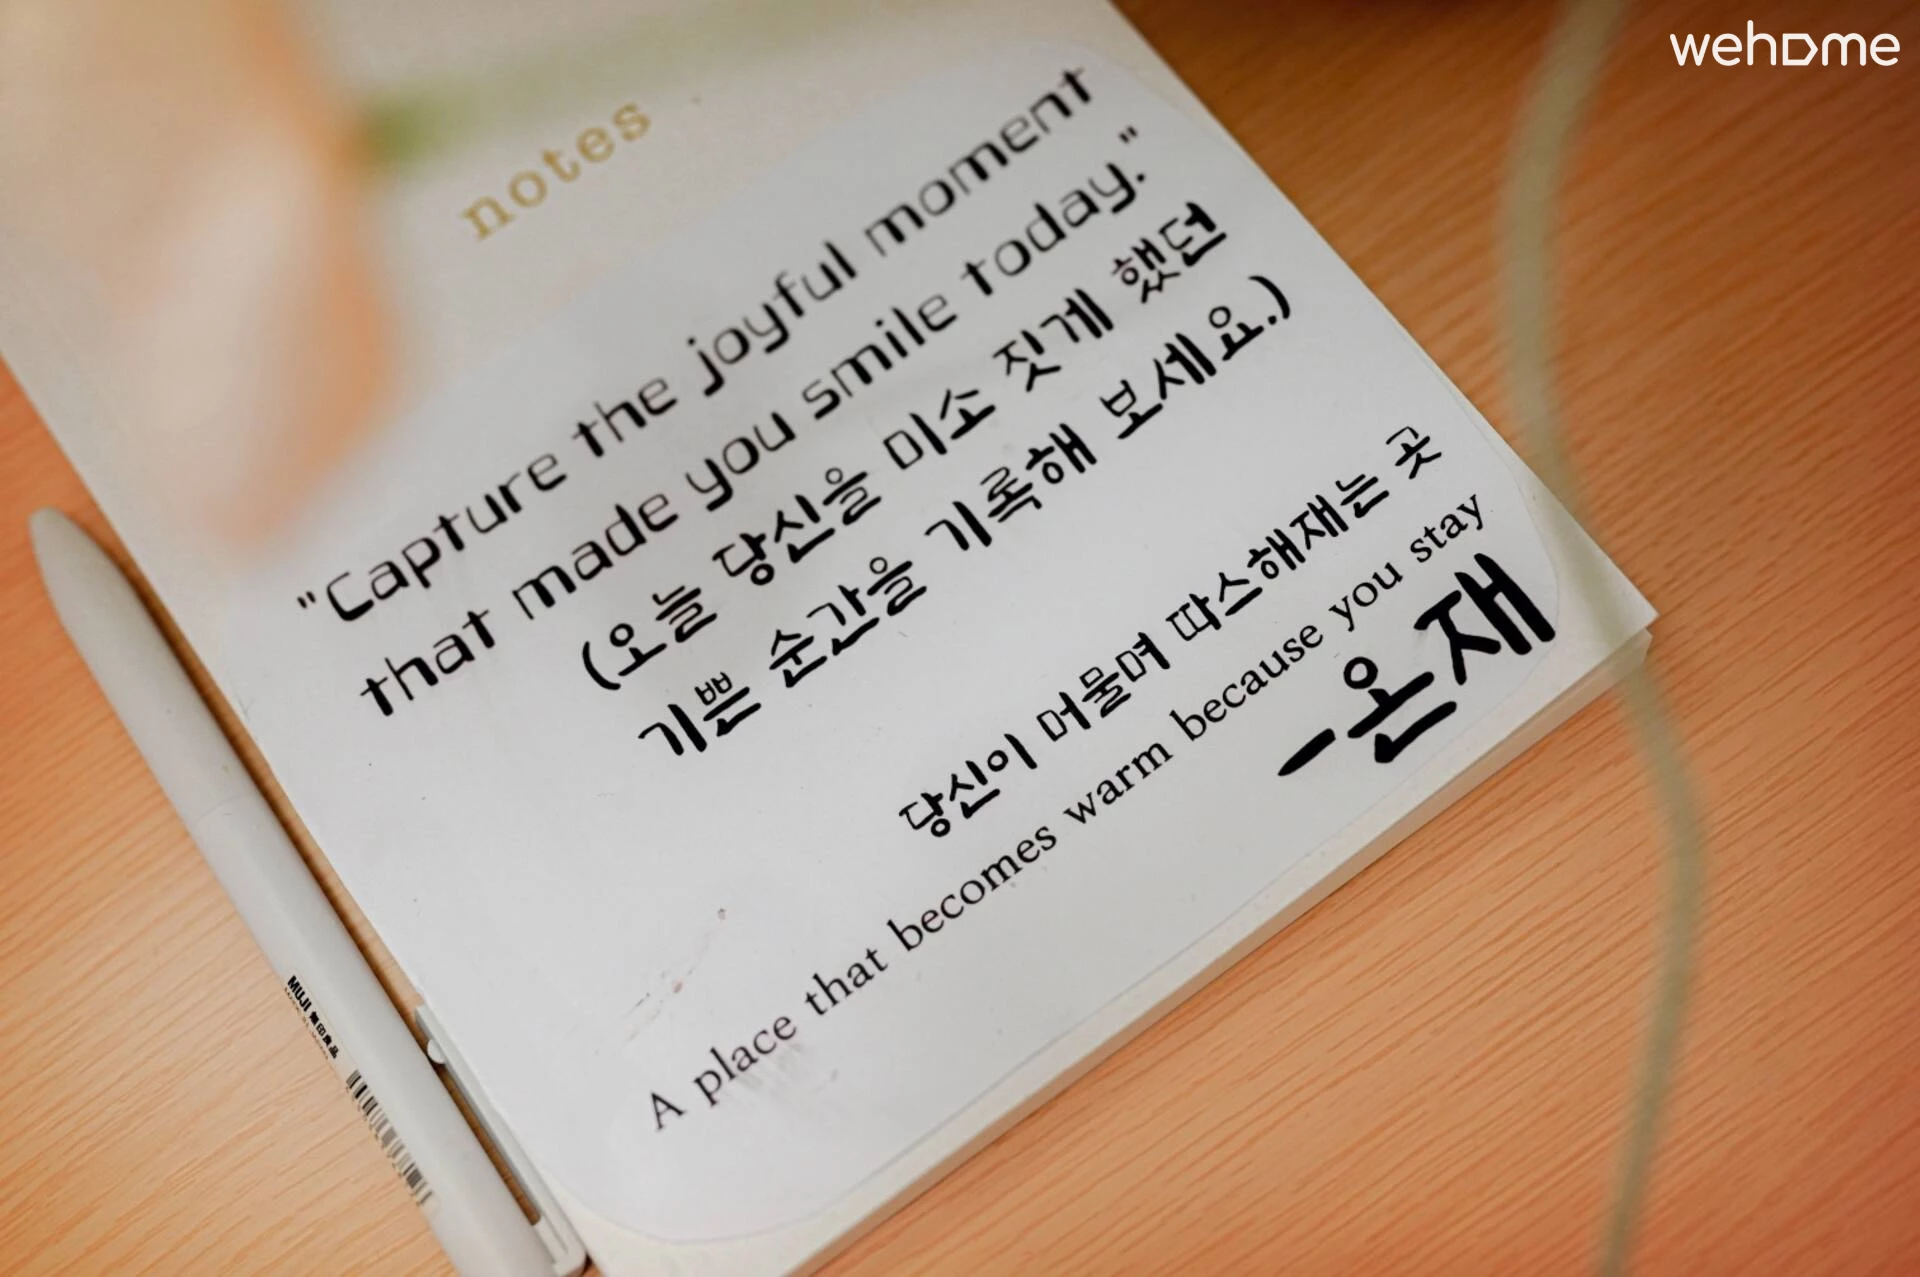 wehome
notes
"Capture the joyful moment
that made you smile today."
(오늘 당신을 미소 짓게 했던
기쁜 순간을 기록해 보세요.)
당신이 머물며 따스해재는 곳
A place that becomes warm because you stay
-온재
MUJI 無印良品